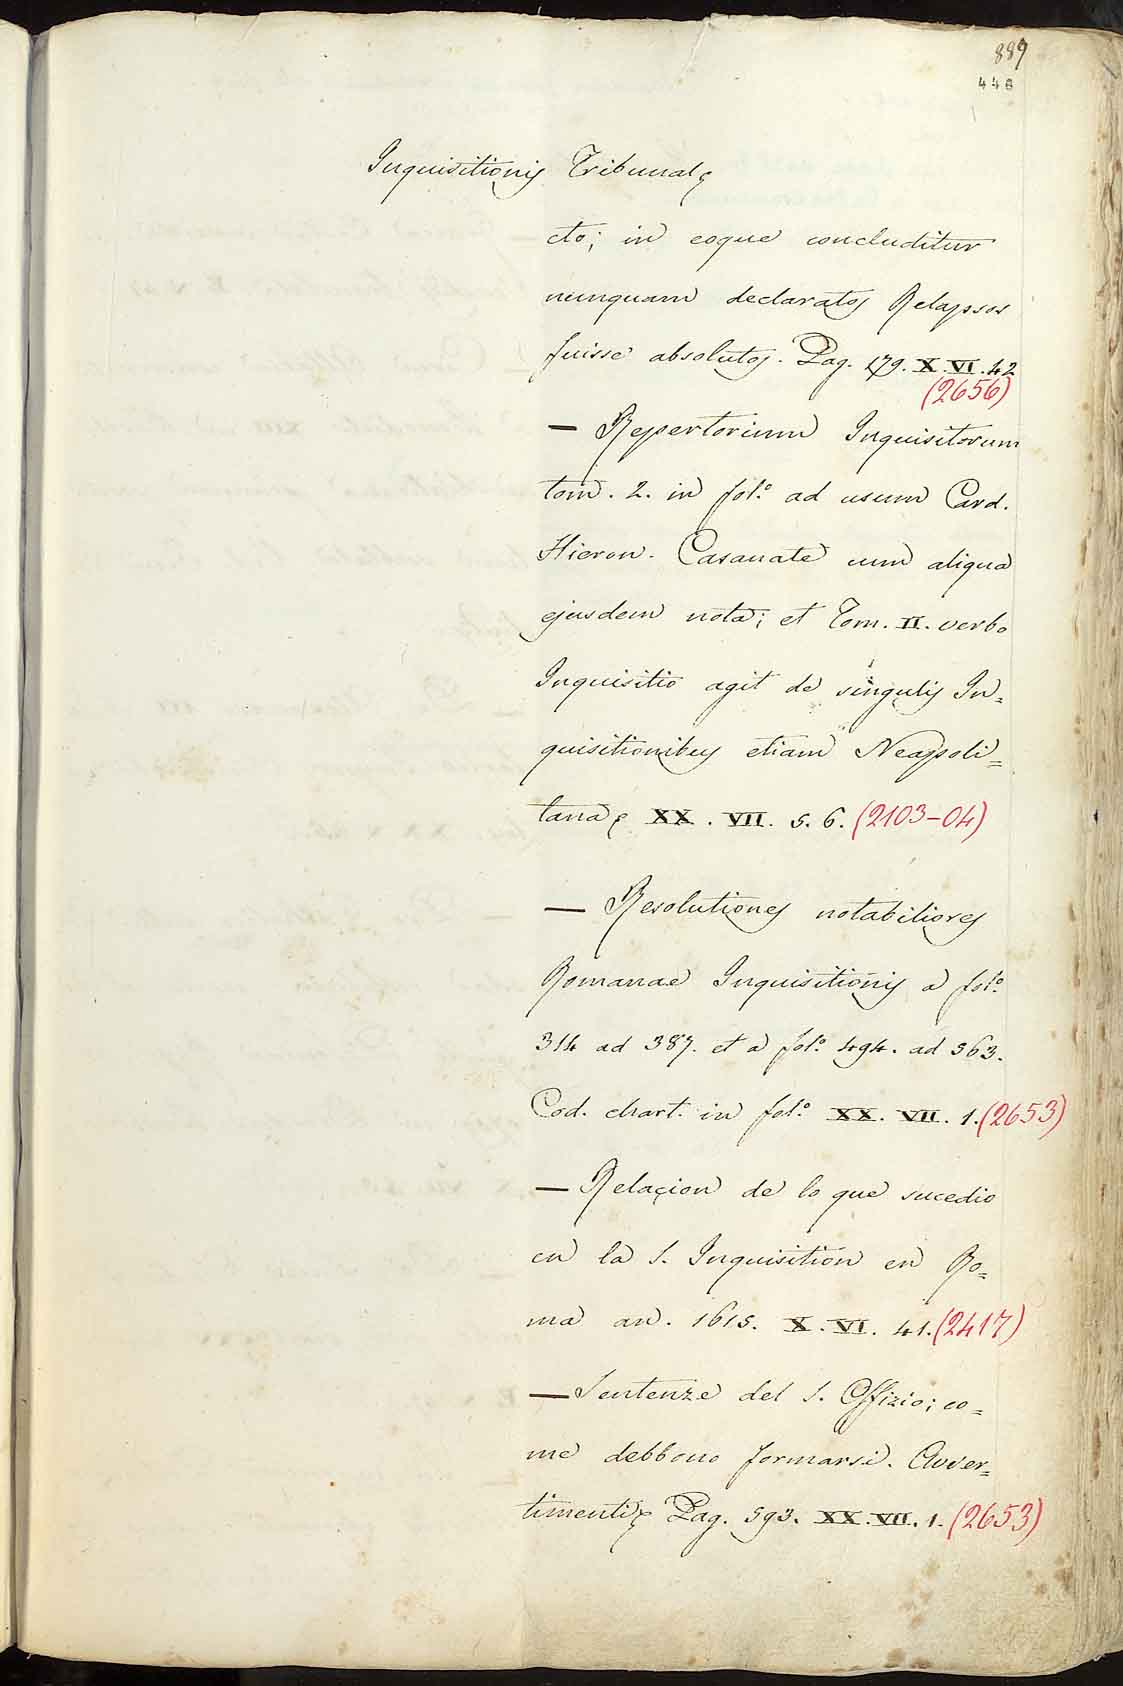 889
448
Inquisitionis Tribunal
cto; in eoque concluditur
nunquam declaratos Relapsos
fuisse absolutos. Pag. 179. X. VI. 42
(2656)
— Repertorium Inquisitorum
tom. 2. in fol.º ad usum Card.
Hieron. Casanate cum aliqua
ejusdem nota; et Tom. II. verbo
Inquisitio agit de singulis In=
quisitionibus etiam Neapoli=
tana XX. VII. 5. 6. (2103-04)
— Resolutiones notabiliores
Romanae Inquisitionis a fol.º
314 ad 387. et a fol.º 494. ad 563.
Cod. chart. in fol.º XX. VII. 1. (2653)
— Relaçion de lo que sucedio
en la S. Inquisition en Ro=
ma an. 1615. X. VI. 41. (2417)
— Sentenze del S. Offizio; co=
me debbono formarsi. Avver=
timenti Pag. 593. XX. VII. 1. (2653)